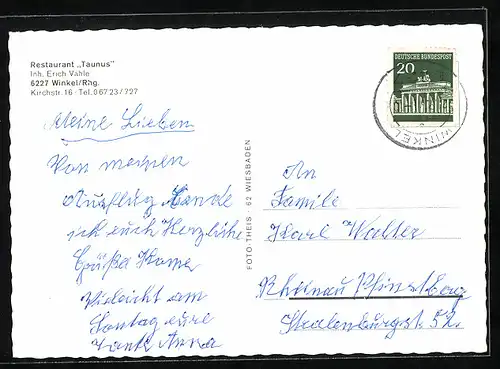 Restaurant „Taunus"
Inh. Erich Vahle
6227 Winkel/Rhg.
Kirchstr. 16 · Tel. 0 67 23 / 727
DEUTSCHE BUNDESPOST
20
WINKEL
FOTO-THEIS · 62 WIESBADEN
Meine Lieben
Von meinen
Ausflug sende
ich euch Herzliche
Grüße Komme
Vieleicht am
Sontag eure
Tante Anna
An
Familie
Karl Walter
Rheinau
52